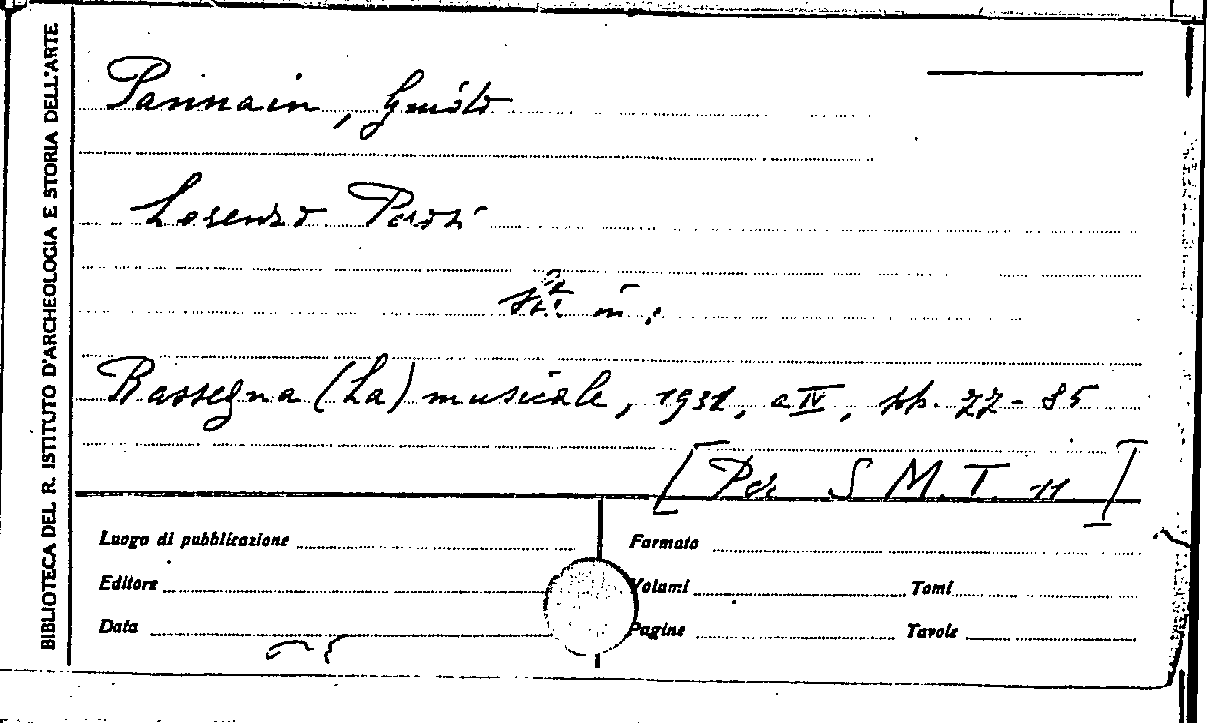 BIBLIOTECA DEL R. ISTITUTO D'ARCHEOLOGIA E STORIA DELL'ARTE
Pannain, Guido
Lorenzo Perosi
in:
Rassegna (La) musicale, 1931, a IV, pp. 77-85
[Per S M. T. 11]
Luogo di pubblicazione
Formato
Editore
Volumi
Tomi
Data
Pagine
Tavole